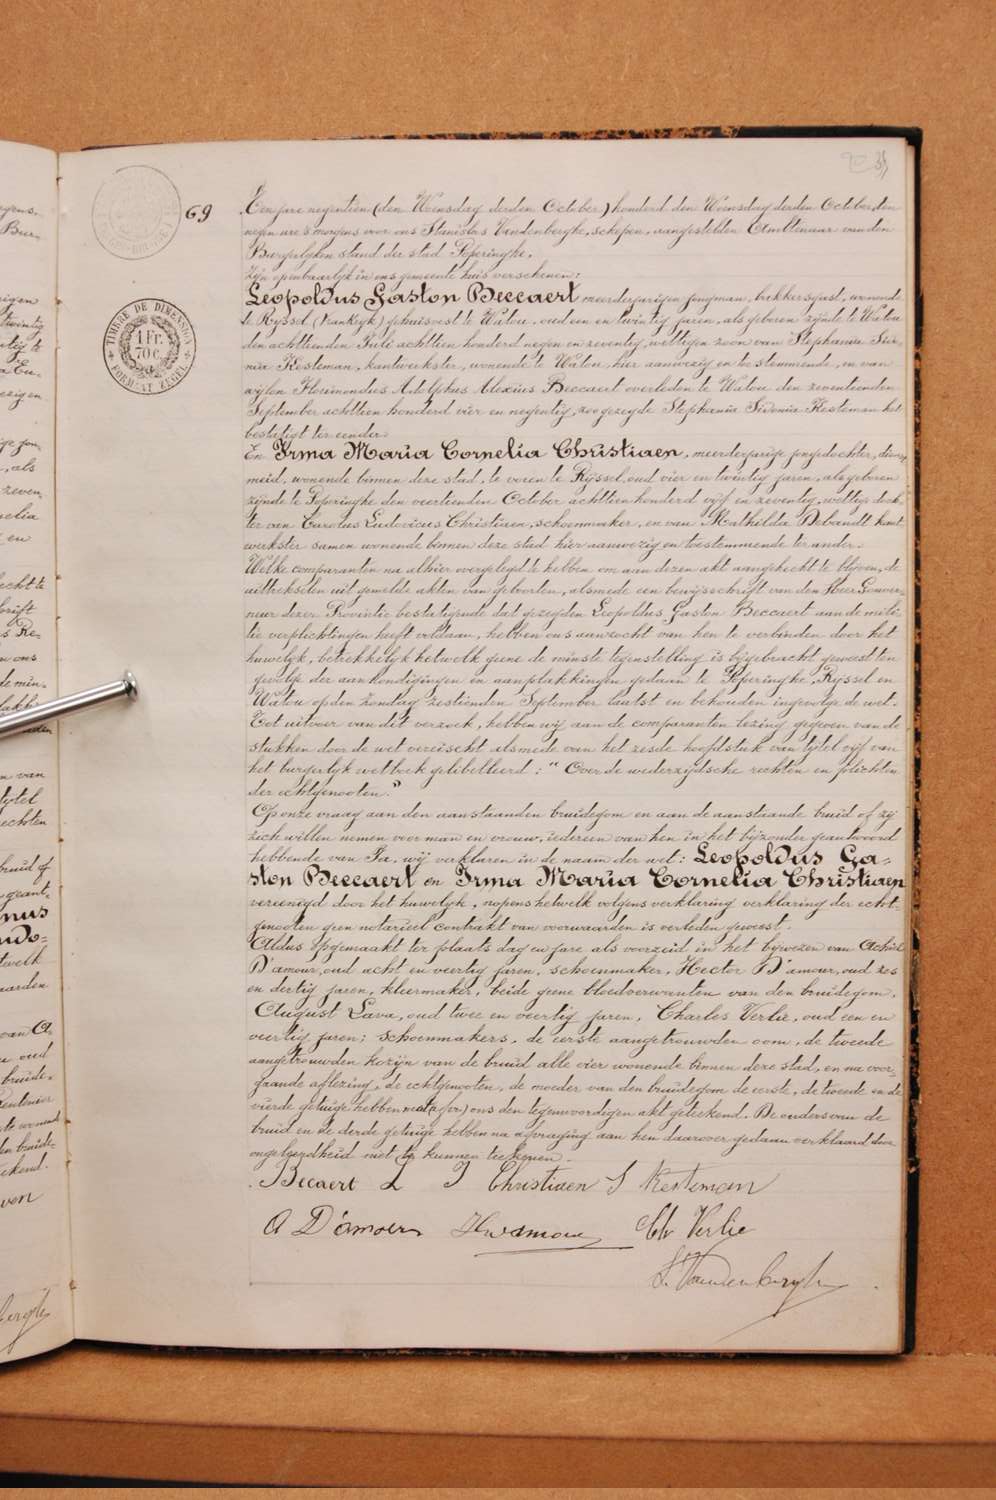 69
Een jare negentien (den Woensdag derden October) honderd den Woensdag derden October, ten
negen ure 's morgens voor ons Stanislas Vandenberghe, schepen, aangestelden Ambtenaar van den
Burgerlyken stand der stad Poperinghe.
Zijn openbaarlyk in ons gemeente huis verschenen:
Leopoldus Gaston Beccaert meerderjarigen jongman, bakkersgast, wonende
te Ryssel (Frankryk) gehuisvest te Watou, oud een en twintig jaren, als geboren zijnde te Watou
den achttienden Juli achttien honderd negen en zeventig, wettigen zoon van Stephania Sido-
nia Kesteman, kantwerkster, wonende te Watou, hier aanwezig en toestemmende, en van
wylen Florimondus Adolphus Alexius Beccaert overleden te Watou den zeventienden
September achttien honderd vier en negentig, zoo gezegde Stephania Sidonia Kesteman het
bestatigt ter eender.
En Irma Maria Cornelia Christiaen, meerderjarige jongedochter, dienst-
meid, wonende binnen deze stad, te voren te Ryssel, oud vier en twintig jaren, als geboren
zijnde te Poperinghe den veertienden October achttien honderd vyf en zeventig, wettige doch-
ter van Carolus Ludovicus Christiaen, schoenmaker, en van Mathilda Debandt kant
werkster samen wonende binnen deze stad hier aanwezig en toestemmende ter ander.
Welke comparanten na alhier overgelegd te hebben om aan dezen akt aangehecht te blyven, de
uittreksels uit gemelde akten van geboorten, alsmede een bewysschrift van den Heer Gouver-
neur dezer Provintie bestatigende dat gezegden Leopoldus Gaston Beccaert aan de mili-
tie verplichtingen heeft voldaan, hebben ons aanzocht van hen te verbinden door het
huwelyk, betrekkelyk hetwelk geene de minste tegenstelling is bijgebracht geweest ten
gevolge der aankondigingen en aanplakkingen gedaan te Poperinghe, Ryssel en
Watou op den Zondag zestienden September laatst en behouden ingevolge de wet.
Tot uitvoer van dit verzoek, hebben wij aan de comparanten lezing gegeven van de
stukken door de wet vereischt alsmede van het zesde hoofdstuk van tytel vyf van
het burgerlyk wetboek gelibelleerd: "Over de wederzydsche rechten en plichten
der echtgenooten."
Op onze vraag aan den aanstaanden bruidegom en aan de aanstaande bruid of zij
zich willen nemen voor man en vrouw, iedereen van hen in het byzonder geantwoord
hebbende van Ja, wij verklaren in de naam der wet: Leopoldus Ga-
ston Beccaert en Irma Maria Cornelia Christiaen
vereenigd door het huwelyk, nopens hetwelk volgens verklaring verklaring der echt-
genooten geen notarieel contrakt van voorwaarden is verleden geweest.
Aldus opgemaakt ter plaats dag en jare als voorzeid in het bijwezen van Achiel
D'amour, oud acht en veertig jaren, schoenmaker, Hector D'amour, oud zes
en dertig jaren, kleermaker, beide geene bloedverwanten van den bruidegom,
August Lava, oud twee en veertig jaren, Charles Verlie, oud een en
veertig jaren; schoenmakers, de eerste aangetrouwden oom, de tweede
aangetrouwden kozijn van de bruid alle vier wonende binnen deze stad, en na voor-
gaande aflezing, de echtgenooten, de moeder van den bruidegom de eerste, de tweede en de
vierde getuige hebben met ons den tegenwoordigen akt geteekend. De ouders van de
bruid en de derde getuige hebben na afvraging aan hen daarover gedaan verklaard door
ongeleerdheid niet te kunnen teekenen.
Beccaert L I Christiaen S Kesteman
A D'amour Ch Verlie
S. Vandenberghe
TIMBRE DE DIMENSION
1 Fr.
70 c.
FORMAAT ZEGEL